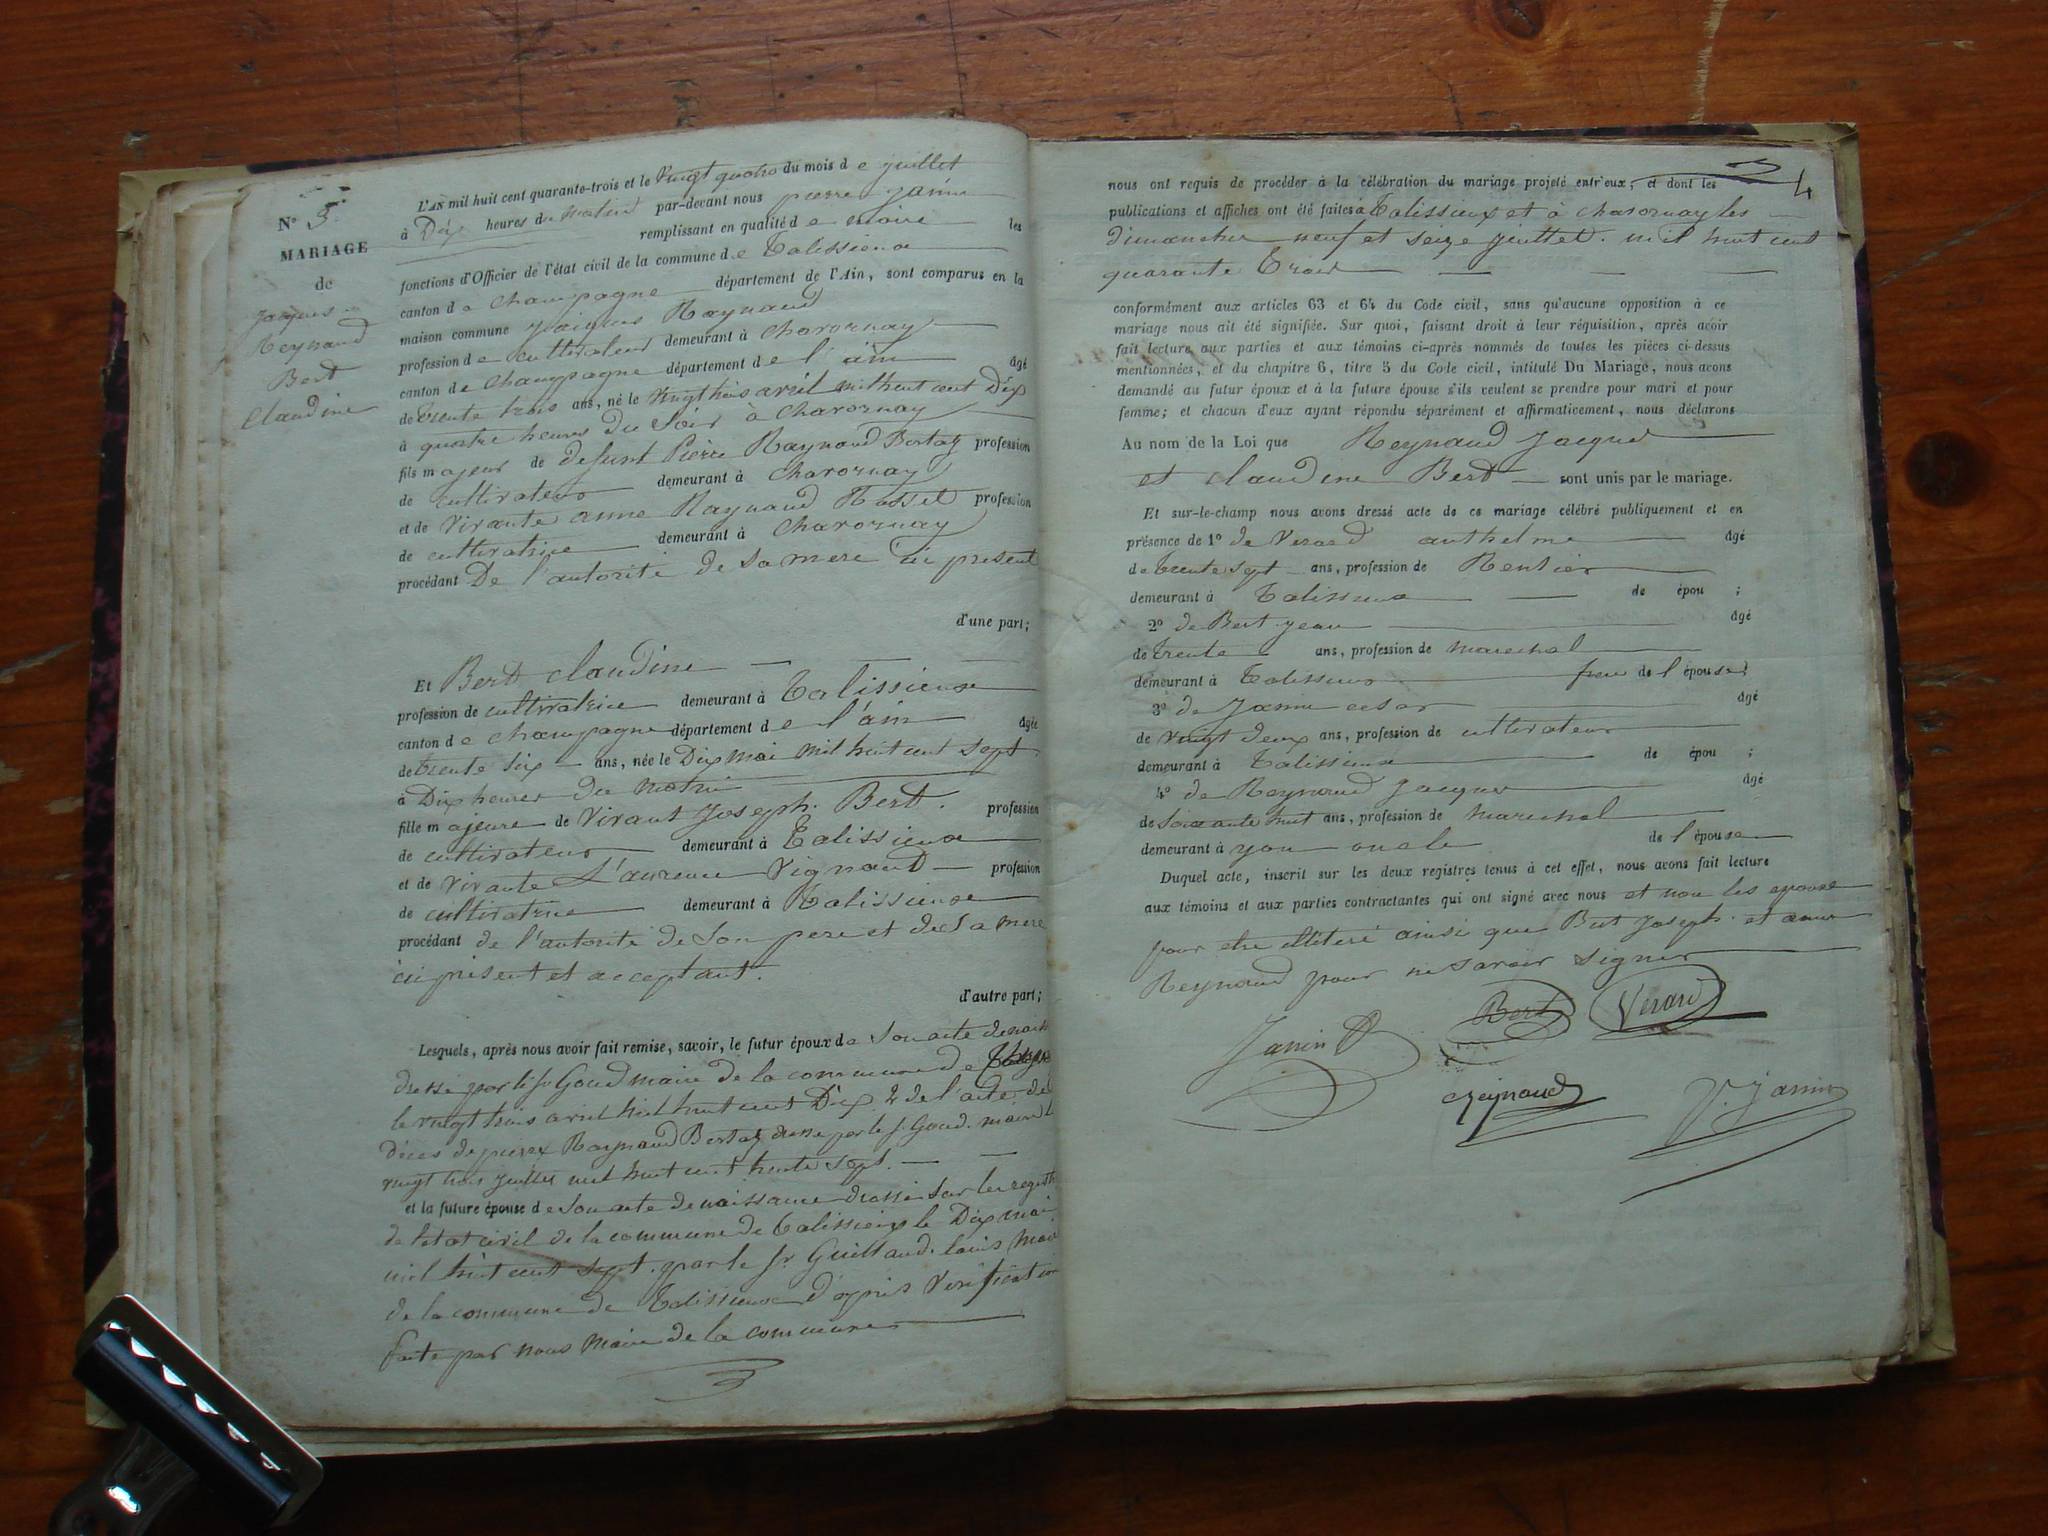 N° 3.
MARIAGE
de
Jacques
Reynaud
Bert
Claudine
L'AN mil huit cent quarante-trois et le vingt quatre du mois de juillet
à Dix heures du matin par-devant nous pierre Janin
remplissant en qualité de maire les
fonctions d'Officier de l'état civil de la commune de Talissieux
canton de Champagne département de l'Ain, sont comparus en la
maison commune Jaiques Raynaud
profession de cultivateur demeurant à Chavornay
canton de Champagne département de l'ain âgé
de trente trois ans, né le vingt trois avril mil huit cent Dix
à quatre heures du soir à Chavornay
fils majeur de defunt Pierre Raynaud Bertaz profession
de cultivateur demeurant à Chavornay
et de vivante anne Raynaud Tosset profession
de cultivatrice demeurant à Chavornay
procédant De l'autorité de sa mere ici present
d'une part;
Et Bert Claudine
profession de cultivatrice demeurant à Talissieux
canton de Champagne département de l'ain âgée
de trente six ans, née le Dix mai mil huit cent sept
à Dix heures du matin
fille majeure de vivant Joseph. Bert. profession
de cultivateur demeurant à Talissieux
et de vivante L'aurence Vignaud profession
de cultivatrice demeurant à Talissieux
procédant de l'autorité de son pere et de sa mere
ici présent et acceptant.
d'autre part;
Lesquels, après nous avoir fait remise, savoir, le futur époux de son acte de nais
dressé par le sr Goud maire de la commune de
le vingt trois avril mil huit cent Dix 2 de l'acte de
déces de pierre Raynaud Bertaz dressé par le sr Goud. maire le
vingt trois juillet mil huit cent trente sept.
et la future épouse de son acte de naissance dressé sur les registre
de l'etat civil de la commune de Talissieux le Dix mai
mil huit cent sept. par le sr Guillaud. louis maire
de la commune de Talissieux d'apres verification
faite par nous maire de la commune
4
nous ont requis de procéder à la célébration du mariage projeté entr'eux, et dont les
publications et affiches ont été faites à Talissieux et à Chavornay les
dimanches neuf et seize juillet. mil huit cent
quarante trois
conformément aux articles 63 et 64 du Code civil, sans qu'aucune opposition à ce
mariage nous ait été signifiée. Sur quoi, faisant droit à leur réquisition, après avoir
fait lecture aux parties et aux témoins ci-après nommés de toutes les pièces ci-dessus
mentionnées, et du chapitre 6, titre 5 du Code civil, intitulé Du Mariage, nous avons
demandé au futur époux et à la future épouse s'ils veulent se prendre pour mari et pour
femme; et chacun d'eux ayant répondu séparément et affirmativement, nous déclarons
Au nom de la Loi que Reynaud Jacques
et claudine Bert sont unis par le mariage.
Et sur-le-champ nous avons dressé acte de ce mariage célébré publiquement et en
présence de 1° de Verard anthelme âgé
de trente sept ans, profession de Rentier
demeurant à Talissieux de épou ;
2° de Bert jean âgé
de trente ans, profession de marechal
demeurant à Talissieux frere de l'épouse;
3° de Janin cesar âgé
de vingt deux ans, profession de cultivateur
demeurant à Talissieux de épou ;
4° de Reynaud Jacques âgé
de soixante huit ans, profession de marechal
demeurant à yon oncle de l'épouse
Duquel acte, inscrit sur les deux registres tenus à cet effet, nous avons fait lecture
aux témoins et aux parties contractantes qui ont signé avec nous et non les epouse
pour etre illiteré ainsi que Bert Joseph. et anne
Reynaud pour ne savoir signer
Janin Bert Verard
Reynaud P. Janin